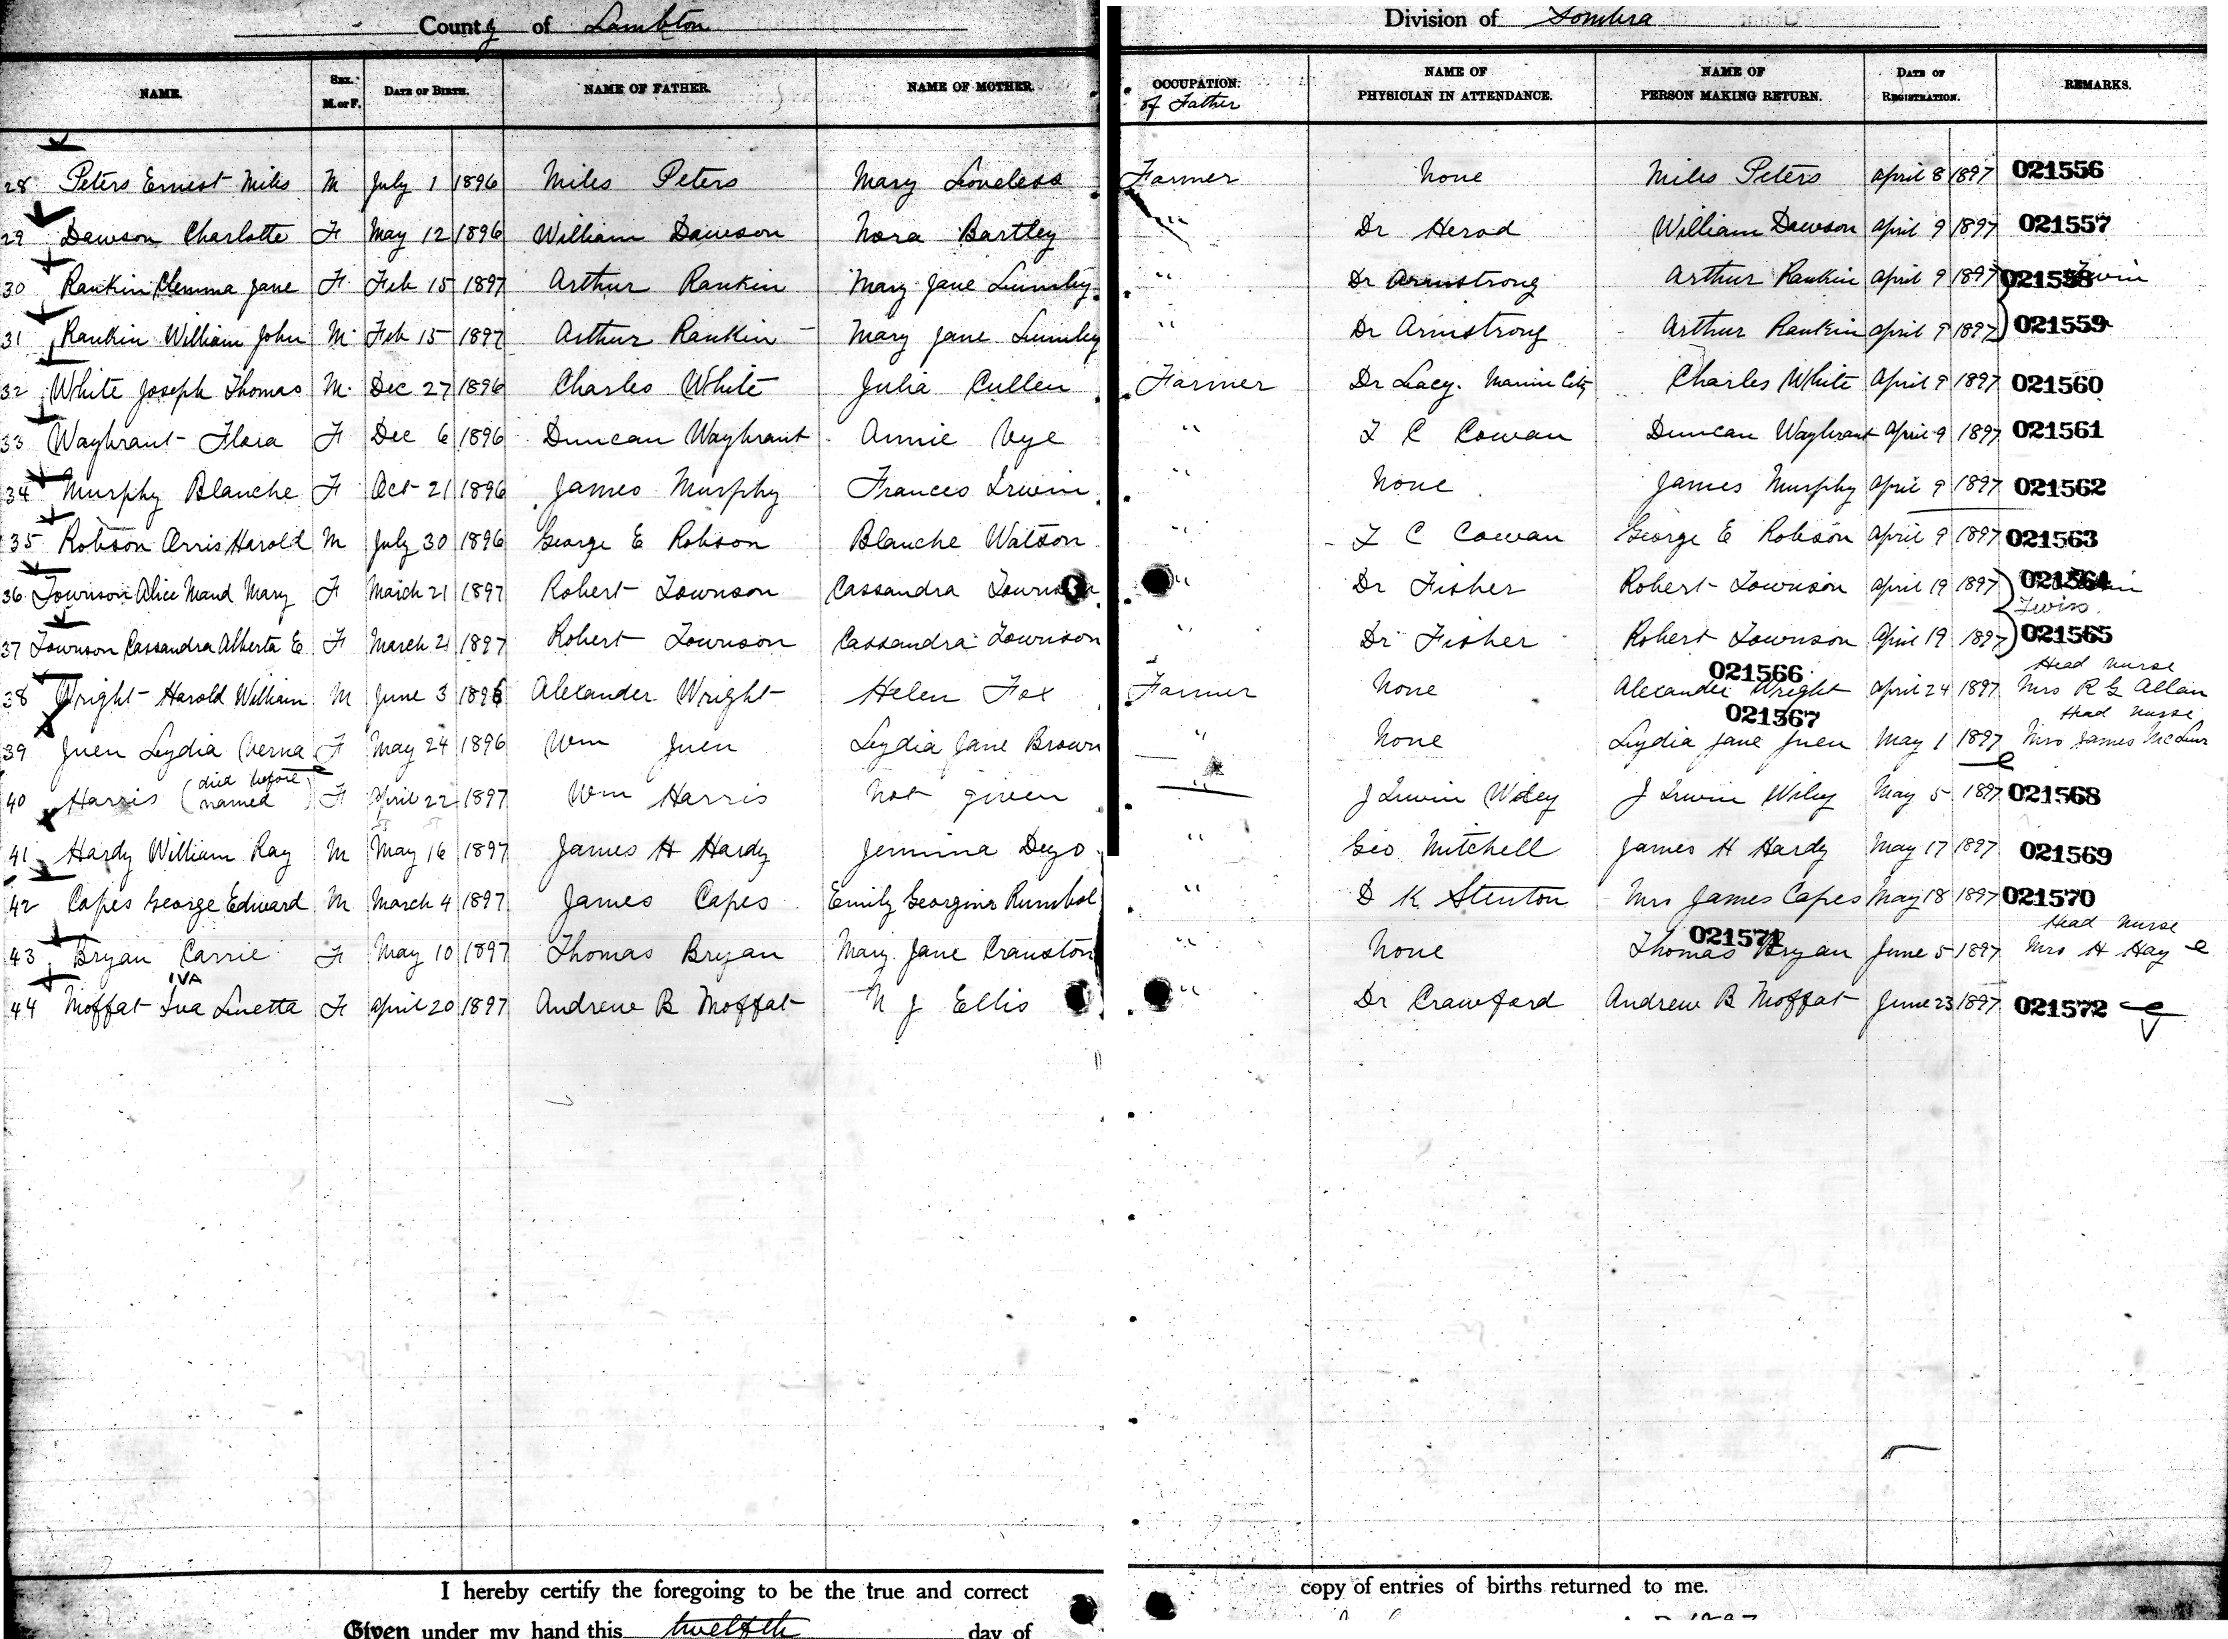 County of Lambton Division of Sombra
NAME. SEX. M. or F. DATE OF BIRTH. NAME OF FATHER. NAME OF MOTHER. OCCUPATION. of Father NAME OF PHYSICIAN IN ATTENDANCE. NAME OF PERSON MAKING RETURN. DATE OF REGISTRATION. REMARKS.
28 Peters Ernest Miles M July 1 1896 Miles Peters Mary Loveless Farmer None Miles Peters April 8 1897 021556
29 Dawson Charlotte F May 12 1896 William Dawson Nora Bartley " Dr Herod William Dawson April 9 1897 021557
30 Rankin Clemma Jane F Feb 15 1897 Arthur Rankin Mary Jane Lumley " Dr Armstrong Arthur Rankin April 9 1897 021558 Twin
31 Rankin William John M Feb 15 1897 Arthur Rankin Mary Jane Lumley " Dr Armstrong Arthur Rankin April 9 1897 021559
32 White Joseph Thomas M. Dec 27 1896 Charles White Julia Cullen Farmer Dr Lacy. Marine City Charles White April 9 1897 021560
33 Waybrant Flora F Dec 6 1896 Duncan Waybrant Annie Vye " T C Cowan Duncan Waybrant April 9 1897 021561
34 Murphy Blanche F Oct 21 1896 James Murphy Frances Irwin " None James Murphy April 9 1897 021562
35 Robson Orris Harold M July 30 1896 George E Robson Blanche Watson " T C Cowan George E Robson April 9 1897 021563
36 Townson Alice Maud Mary F March 21 1897 Robert Townson Cassandra Townson " Dr Fisher Robert Townson April 19 1897 021564
Twins
37 Townson Cassandra Alberta E F March 21 1897 Robert Townson Cassandra Townson " Dr Fisher Robert Townson April 19 1897 021565
021566 Head Nurse
38 Wright Harold William M June 3 1896 Alexander Wright Helen Fox Farmer None Alexander Wright April 24 1897 Mrs R G Allan
021567 Head Nurse
39 Juen Lydia Verna F May 24 1896 Wm Juen Lydia Jane Brown " None Lydia Jane Juen May 1 1897 Mrs James
40 Harris (died before named) F April 22 1897 Wm Harris Not given " J Irwin Wiley J Irwin Wiley May 5 1897 021568
41 Hardy William Ray M May 16 1897 James H Hardy Jemima Deyo " Geo Mitchell James H Hardy May 17 1897 021569
42 Capes George Edward M March 4 1897 James Capes Emily Georgina Rumbol " D K Stenton Mrs James Capes May 18 1897 021570
021571 Head Nurse
43 Bryan Carrie F May 10 1897 Thomas Bryan Mary Jane Cranston " None Thomas Bryan June 5 1897 Mrs H Hay
IVA
44 Moffat Iva Linetta F April 20 1897 Andrew B Moffat N J Ellis " Dr Crawford Andrew B Moffat June 23 1897 021572
I hereby certify the foregoing to be the true and correct copy of entries of births returned to me.
Given under my hand this twelfth day of